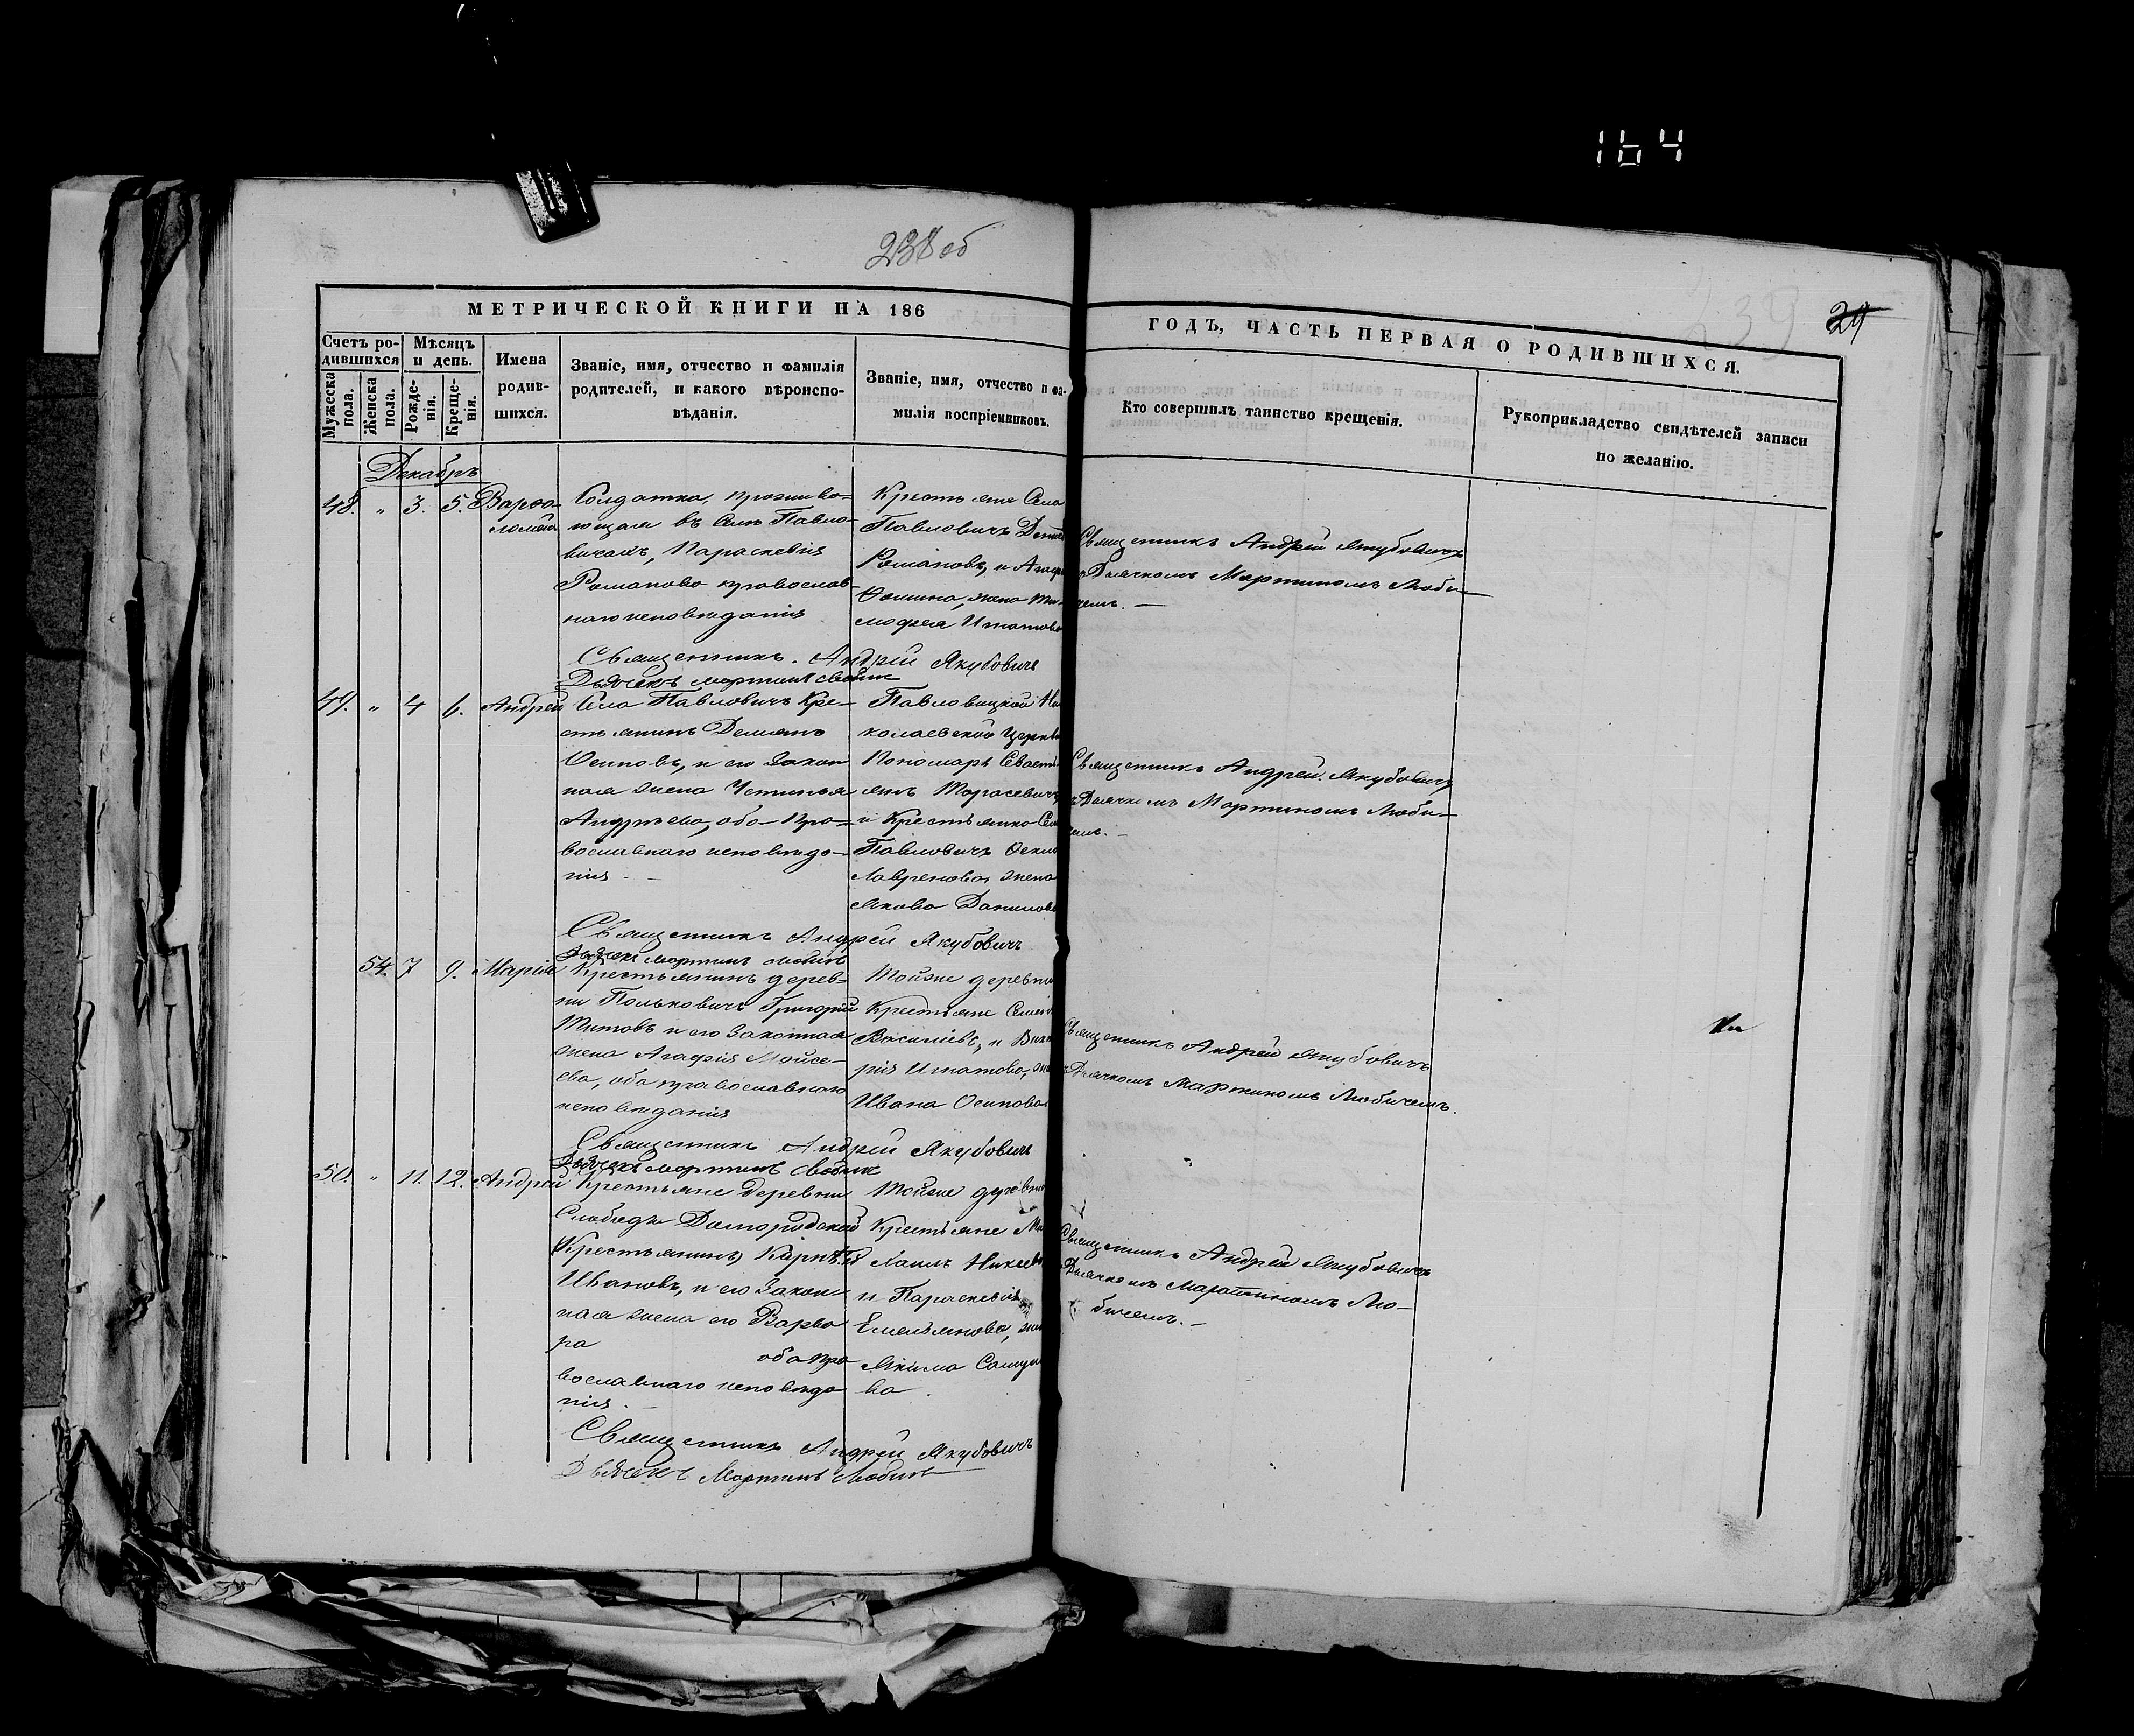 164
238 об
29
МЕТРИЧЕСКОЙ КНИГИ НА 186
ГОДЪ, ЧАСТЬ ПЕРВАЯ О РОДИВШИХСЯ.
Счетъ ро-
дившихся
Мужеска
пола.
Женска
пола.
Мѣсяцъ
и день.
Рожде-
нія.
Креще-
нія.
Имена
родив-
шихся.
Званіе, имя, отчество и фамилія
родителей, и какого вѣроиспо-
вѣданія.
Званіе, имя, отчество и фа-
милія воспріемниковъ.
Кто совершилъ таинство крещенія.
Рукоприкладство свидѣтелей записи
по желанію.
Декабрь
48. „ 3. 5. Варѳо-
ломей
Солдатка, прожива-
ющая въ селѣ Павло-
вичахъ, Параскевія
Романова православ-
наго исповѣданія
Крестьяне Села
Павловичъ
Романовъ, и
Ѳомина, жена Ти-
мофея Игнатова
Священникъ Андрей Якубовичъ
съ Дьячкомъ Мартиномъ Люби-
чемъ. —
Священникъ. Андрей Якубовичъ
Дьячекъ Мартинъ Любичъ
49. „ 4 6. Андрей
Села Павловичъ Кре-
стьянинъ Демьянъ
Осиповъ, и его Закон
ная жена Устинья
Андреева, оба Пра-
вославнаго исповѣда-
нія. —
Павловицкой Ни
колаевской Церкви
Пономарь Севасть
янъ Тарасевичъ,
и Крестьянка Села
Павловичъ
Лавренова жена
Якова Данилова
Священникъ Андрей Якубовичъ
съ Дьячкомъ Мартиномъ Люби-
чемъ. —
Священникъ Андрей Якубовичъ
Дьячекъ Мартинъ Любичъ
54. 7 9. Марія
Крестьянинъ дерев-
ни Польковичъ Григорій
Титовъ и его Законная
жена Агафія Мойсе-
ева, оба православнаго
исповѣданія
Тойже деревни
Крестьяне Семенъ
Василіевъ, и
рія Игнатова, жена
Ивана Осипова
Священникъ Андрей Якубовичъ
съ Дьячкомъ Мартиномъ Любичемъ.
Священникъ Андрей Якубовичъ
Дьячекъ Мартинъ Любичъ
50. „ 11. 12. Андрей
Крестьяне Деревни
Слободы
(Крестьянинъ) Карнѣй
Ивановъ, и его Закон-
ная жена его Варва
ра оба пра
вославнаго исповѣда
нія. —
Тойже деревни
Крестьяне Ми
хаилъ
и Параскевія
Емельянова, жена
Якима Самуи
ва.
Священникъ Андрей Якубовичъ
Дьячкомъ Мартиномъ Лю-
бичемъ. —
Священникъ Андрей Якубовичъ
Дьячекъ Мартинъ Любичъ